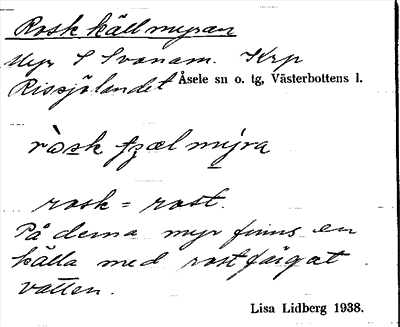 Rosk källmyran
Myr S Svanam. Krp
Rissjölandet Åsele sn o. tg, Västerbottens l.
ròsk fzælmyra
rosk = rost.
På denna myr finns en
källa med rostfärgat
vatten.
Lisa Lidberg 1938.